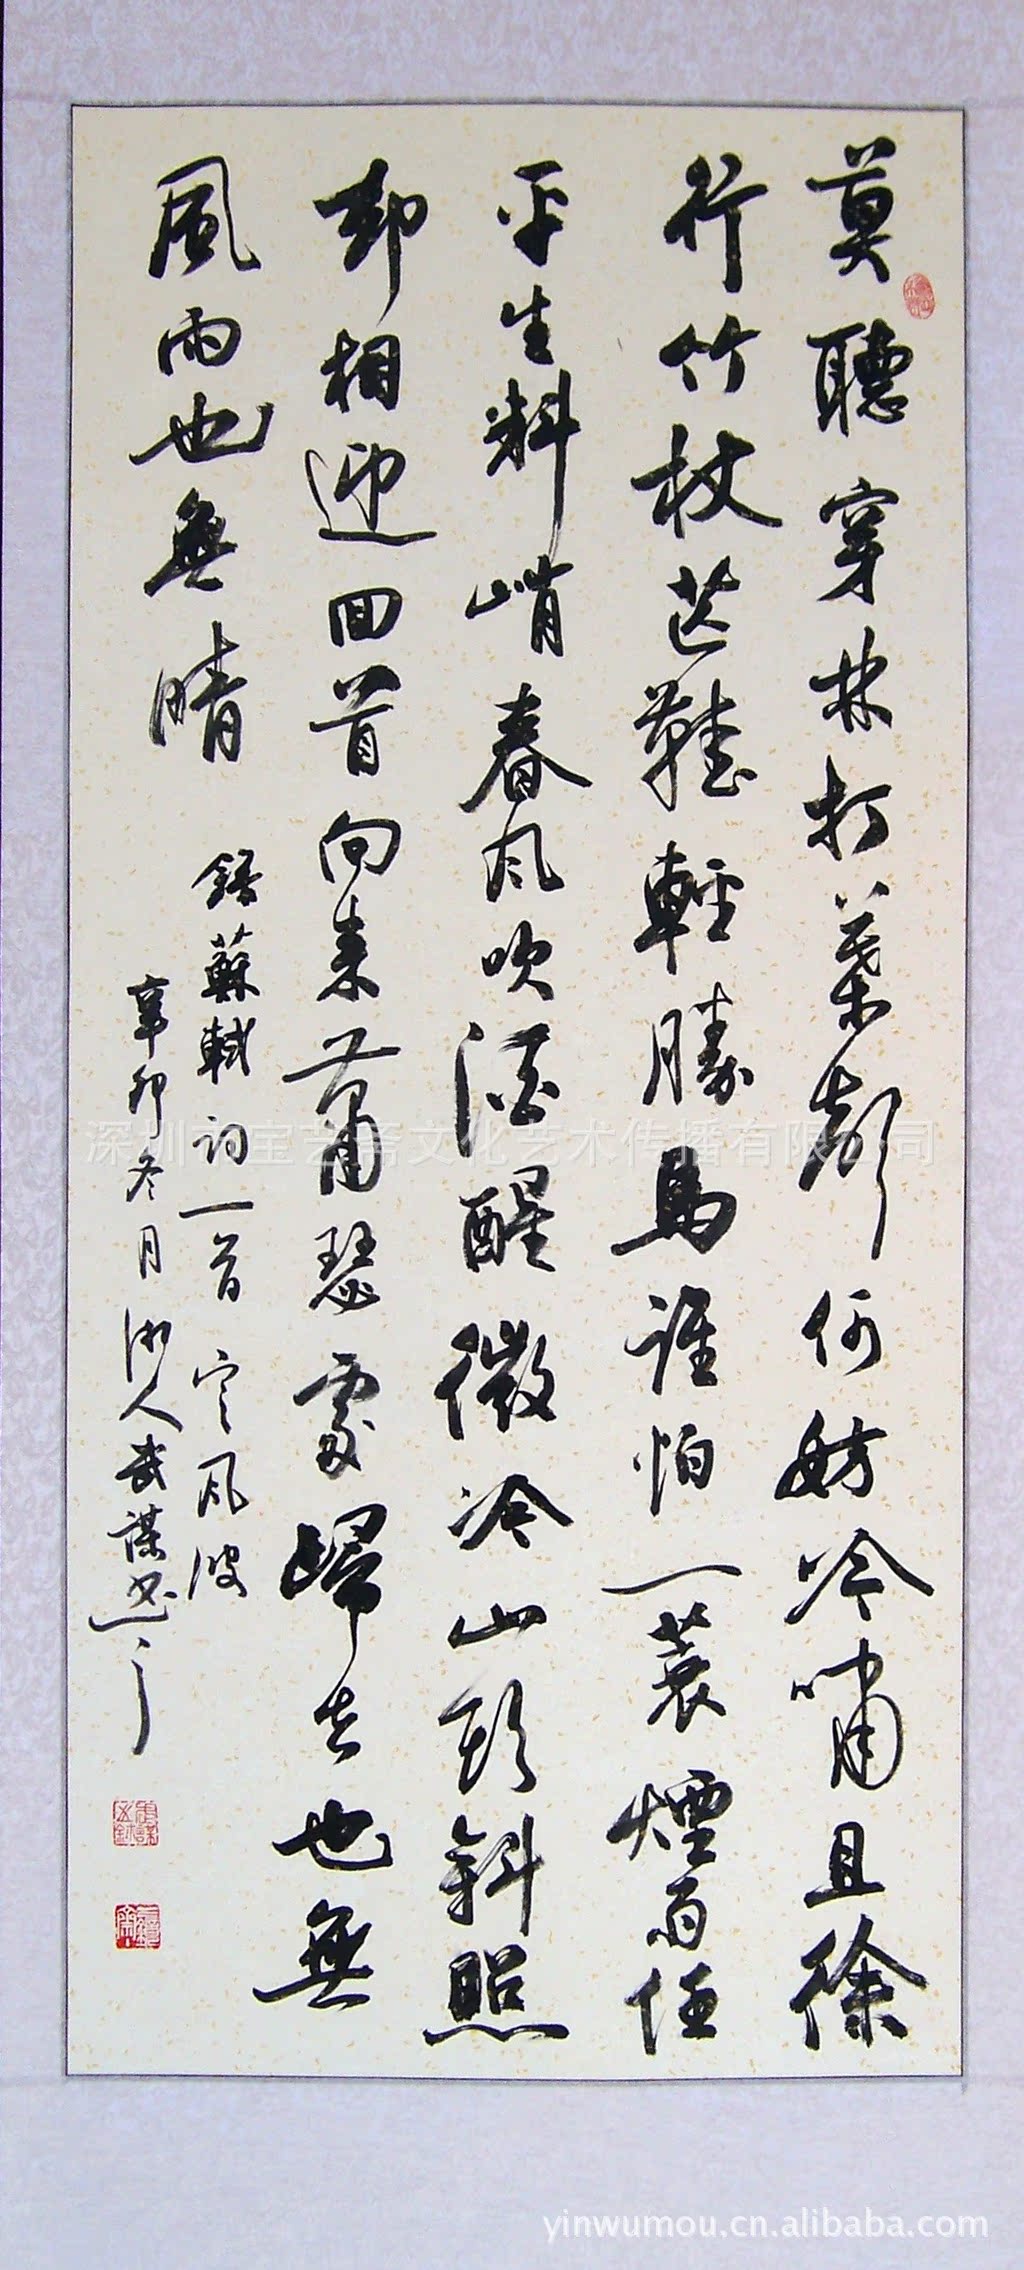 莫聽穿林打葉聲何妨吟嘯且徐
行竹杖芒鞵輕勝馬誰怕一蓑煙雨任
平生料峭春風吹酒醒微冷山頭斜照
却相迎回首向來蕭瑟處歸去也無
風雨也無晴
錄蘇軾詞一首定風波
辛卯冬月湘人武謀書
深圳市宝艺斋文化艺术传播有限公司
yinwumou.cn.alibaba.com